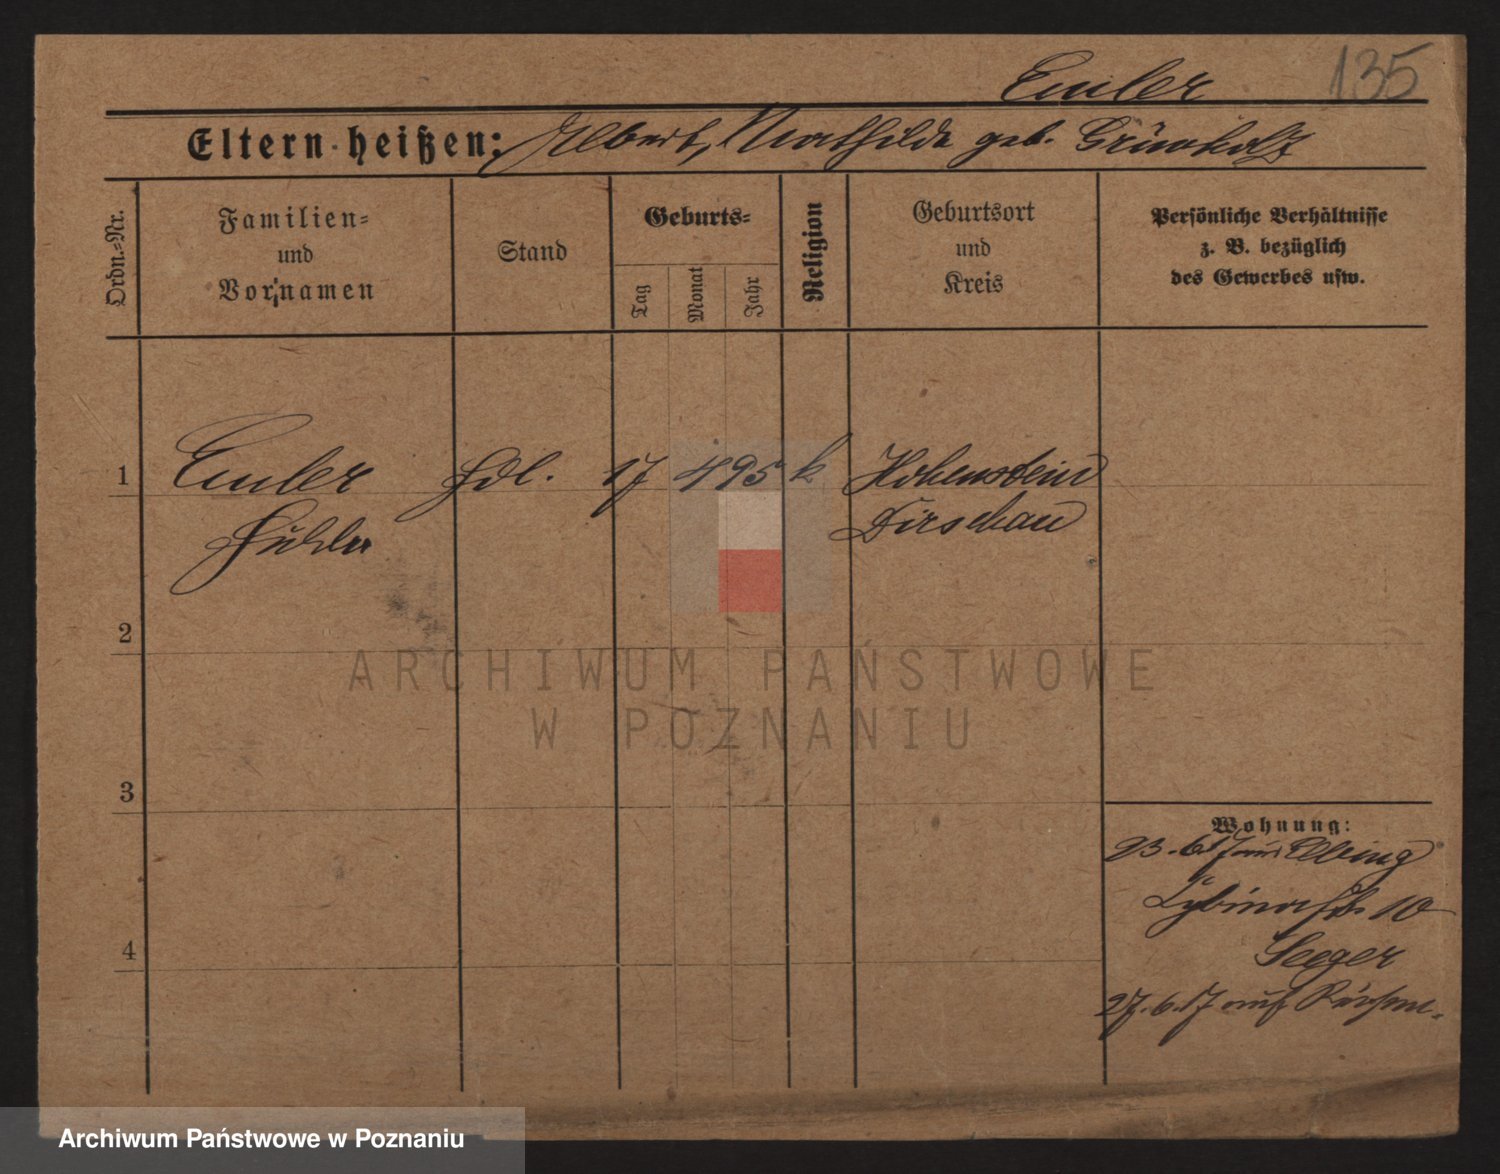 Emler 135
Eltern heißen: Albert, Mathilde geb. Grünholz
Ordn.-Nr.
Familien-
und
Vornamen
Stand
Geburts-
Tag
Monat
Jahr
Religion
Geburtsort
und
Kreis
Persönliche Verhältnisse
z. B. bezüglich
des Gewerbes usw.
1 Emler 17 4 95 k Hohenstein
Dirschau
2
3
4
Wohnung:
23.6.17 aus Elbing
10
Seeger
27.6.17 auf
ARCHIWUM PAŃSTWOWE
W POZNANIU
Archiwum Państwowe w Poznaniu